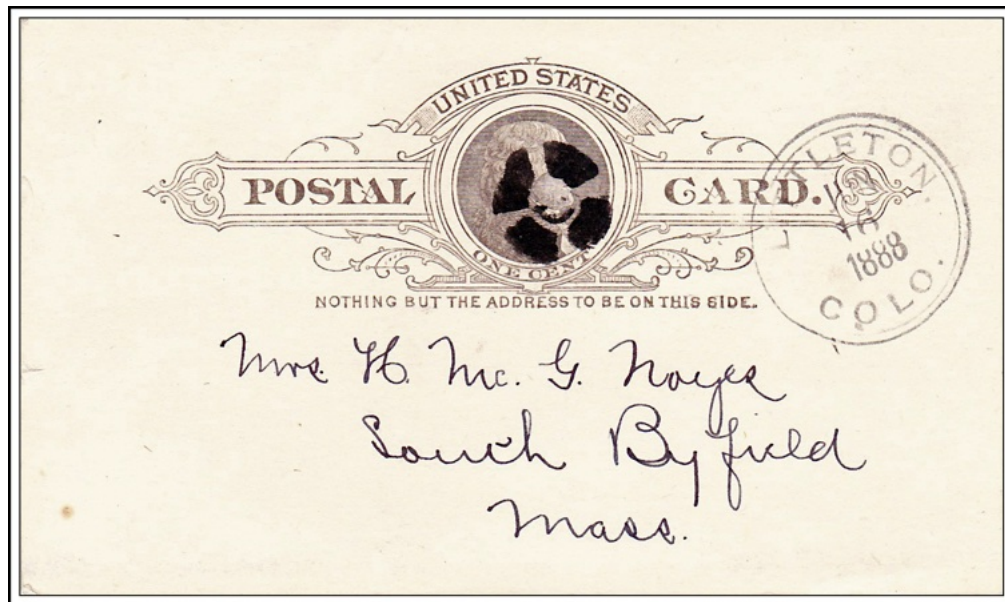 UNITED STATES
POSTAL CARD.
ONE CENT
NOTHING BUT THE ADDRESS TO BE ON THIS SIDE.
LITTLETON.
16
1888
COLO.
Mrs. H. Mc. G. Noyes
South Byfield
Mass.